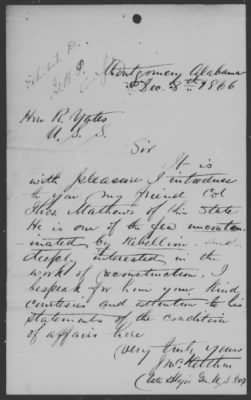 Exhibit D.
G.H.S.
Montgomery Alabama
Dec. 8th 1866
Hon R. Yates
U. S. S.
Sir
It is
with pleasure I introduce
to you, my friend Col
Thos. Mathews of this State
He is one of the few uncontam-
-inated by Rebellion, and
deeply interested in the
work of reconstruction. I
bespeak for him your kind
courtesies and attention to his
statements of the condition
of affairs here
Very truly yours
Late Major Gen. U.S. Vols